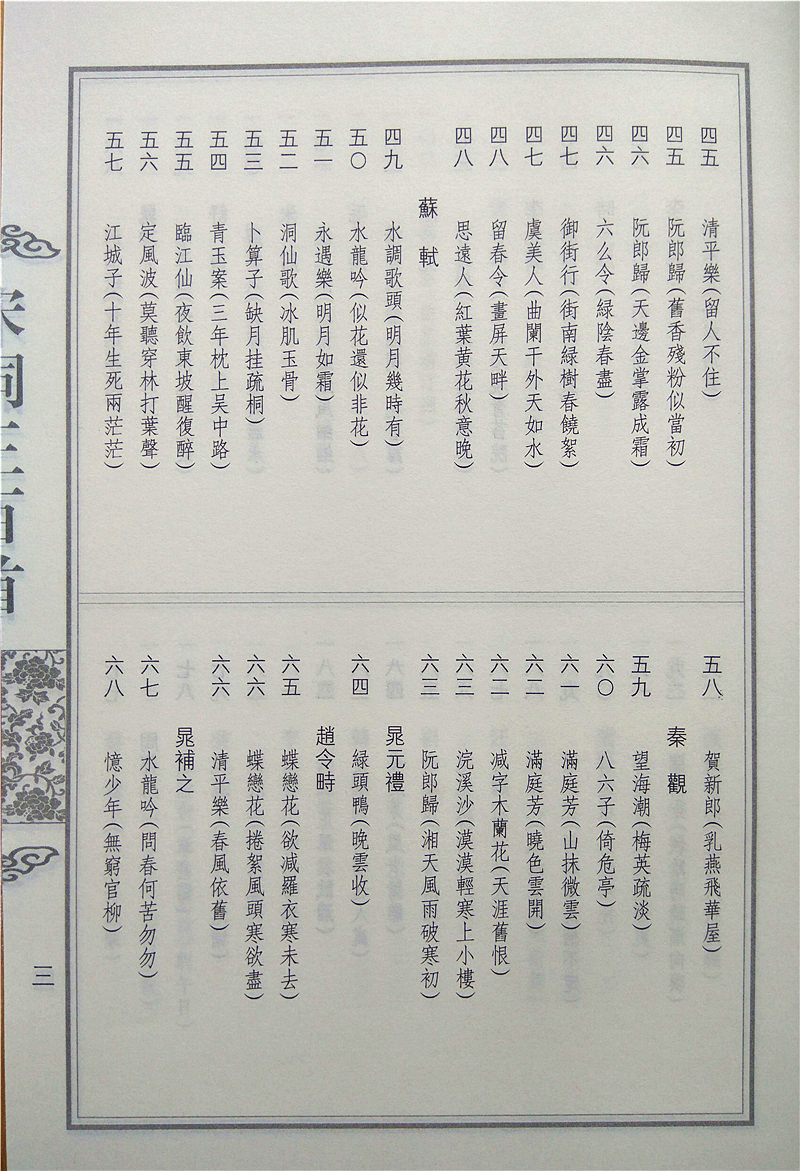 四五 清平樂(留人不住)
四五 阮郎歸(舊香殘粉似當初)
四六 阮郎歸(天邊金掌露成霜)
四六 六么令(緑陰春盡)
四七 御街行(街南緑樹春饒絮)
四七 虞美人(曲闌干外天如水)
四八 留春令(畫屏天畔)
四八 思遠人(紅葉黄花秋意晚)
蘇軾
四九 水調歌頭(明月幾時有)
五〇 水龍吟(似花還似非花)
五一 永遇樂(明月如霜)
五二 洞仙歌(冰肌玉骨)
五三 卜算子(缺月挂疏桐)
五四 青玉案(三年枕上吴中路)
五五 臨江仙(夜飲東坡醒復醉)
五六 定風波(莫聽穿林打葉聲)
五七 江城子(十年生死兩茫茫)
五八 賀新郎(乳燕飛華屋)
秦觀
五九 望海潮(梅英疏淡)
六〇 八六子(倚危亭)
六一 滿庭芳(山抹微雲)
六二 滿庭芳(曉色雲開)
六二 减字木蘭花(天涯舊恨)
六三 浣溪沙(漠漠輕寒上小樓)
六三 阮郎歸(湘天風雨破寒初)
晁元禮
六四 緑頭鴨(晚雲收)
趙令時
六五 蝶戀花(欲减羅衣寒未去)
六六 蝶戀花(捲絮風頭寒欲盡)
六六 清平樂(春風依舊)
晁補之
六七 水龍吟(問春何苦匆匆)
六八 憶少年(無窮官柳)
宋詞三百首
三